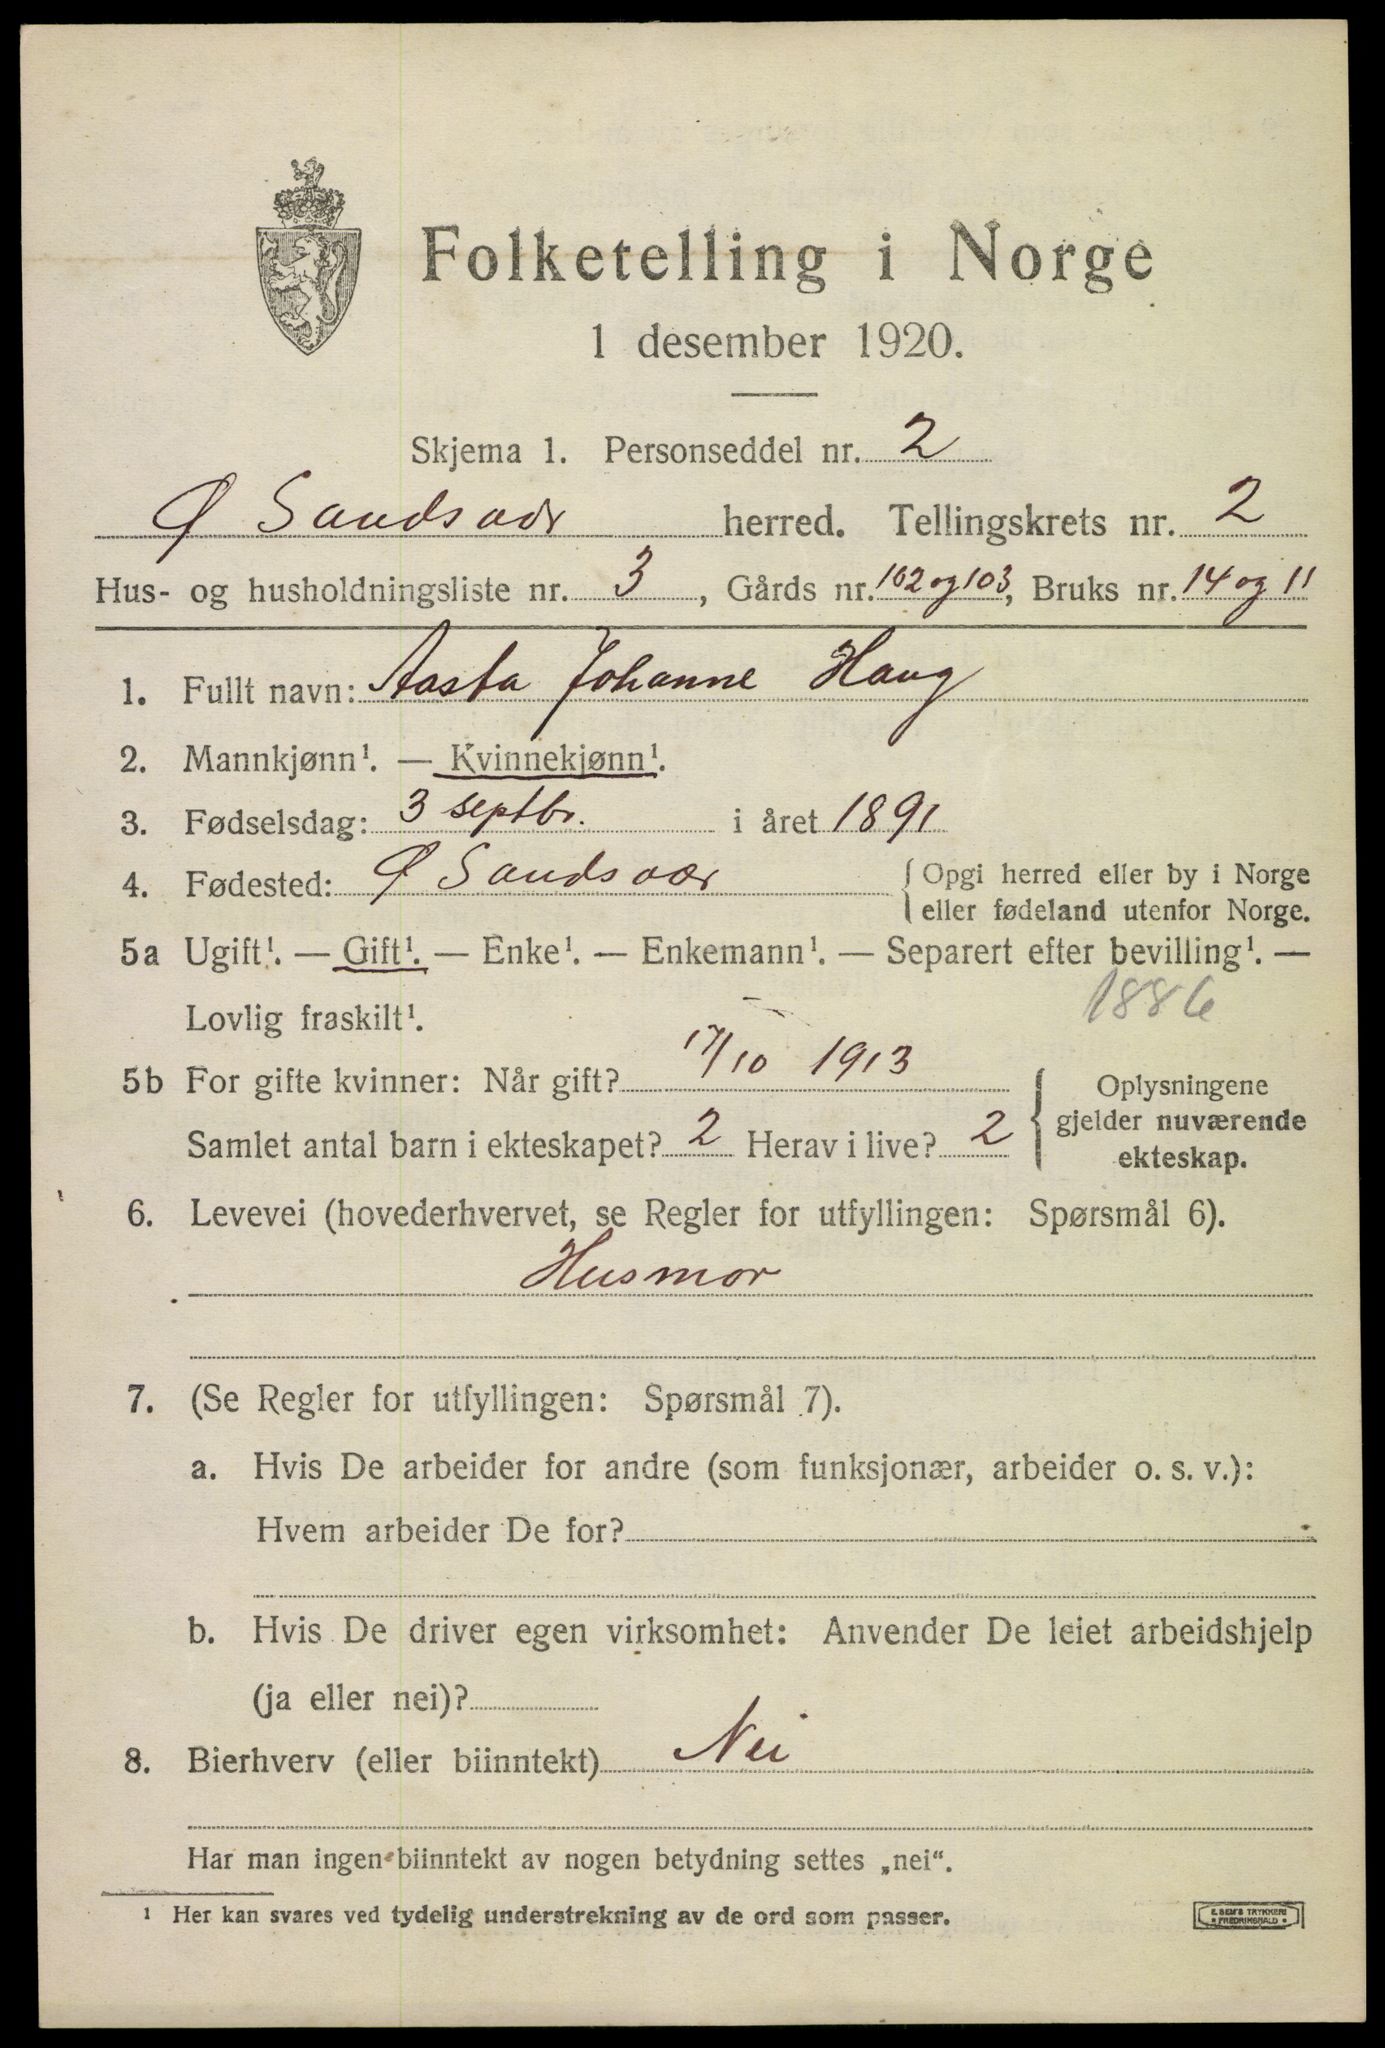 Folketelling i Norge
1 desember 1920.
Skjema 1. Personseddel nr. 2
Ø Sandsvær herred. Tellingskrets nr. 2
Hus- og husholdningsliste nr. 3, Gårds nr. 102 og 103, Bruks nr. 14 og 11
1. Fullt navn: Aasta Johanne Haug
2. Mannkjønn¹. — Kvinnekjønn¹.
3. Fødselsdag: 3 septbr. i året 1891
4. Fødested: Ø Sandsvær { Opgi herred eller by i Norge
eller fødeland utenfor Norge.
5a Ugift¹. — Gift¹. — Enke¹. — Enkemann¹. — Separert efter bevilling¹. —
Lovlig fraskilt¹. 1886
5b For gifte kvinner: Når gift? 17/10 1913
Samlet antal barn i ekteskapet? 2 Herav i live? 2
{ Oplysningene
gjelder nuværende
ekteskap.
6. Levevei (hovederhvervet, se Regler for utfyllingen: Spørsmål 6).
Husmor
7. (Se Regler for utfyllingen: Spørsmål 7).
a. Hvis De arbeider for andre (som funksjonær, arbeider o. s. v.):
Hvem arbeider De for?
b. Hvis De driver egen virksomhet: Anvender De leiet arbeidshjelp
(ja eller nei)?
8. Bierhverv (eller biinntekt) Nei
Har man ingen biinntekt av nogen betydning settes „nei“.
¹ Her kan svares ved tydelig understrekning av de ord som passer.
E. SEM'S TRYKKERI
• FREDRIKSHALD •